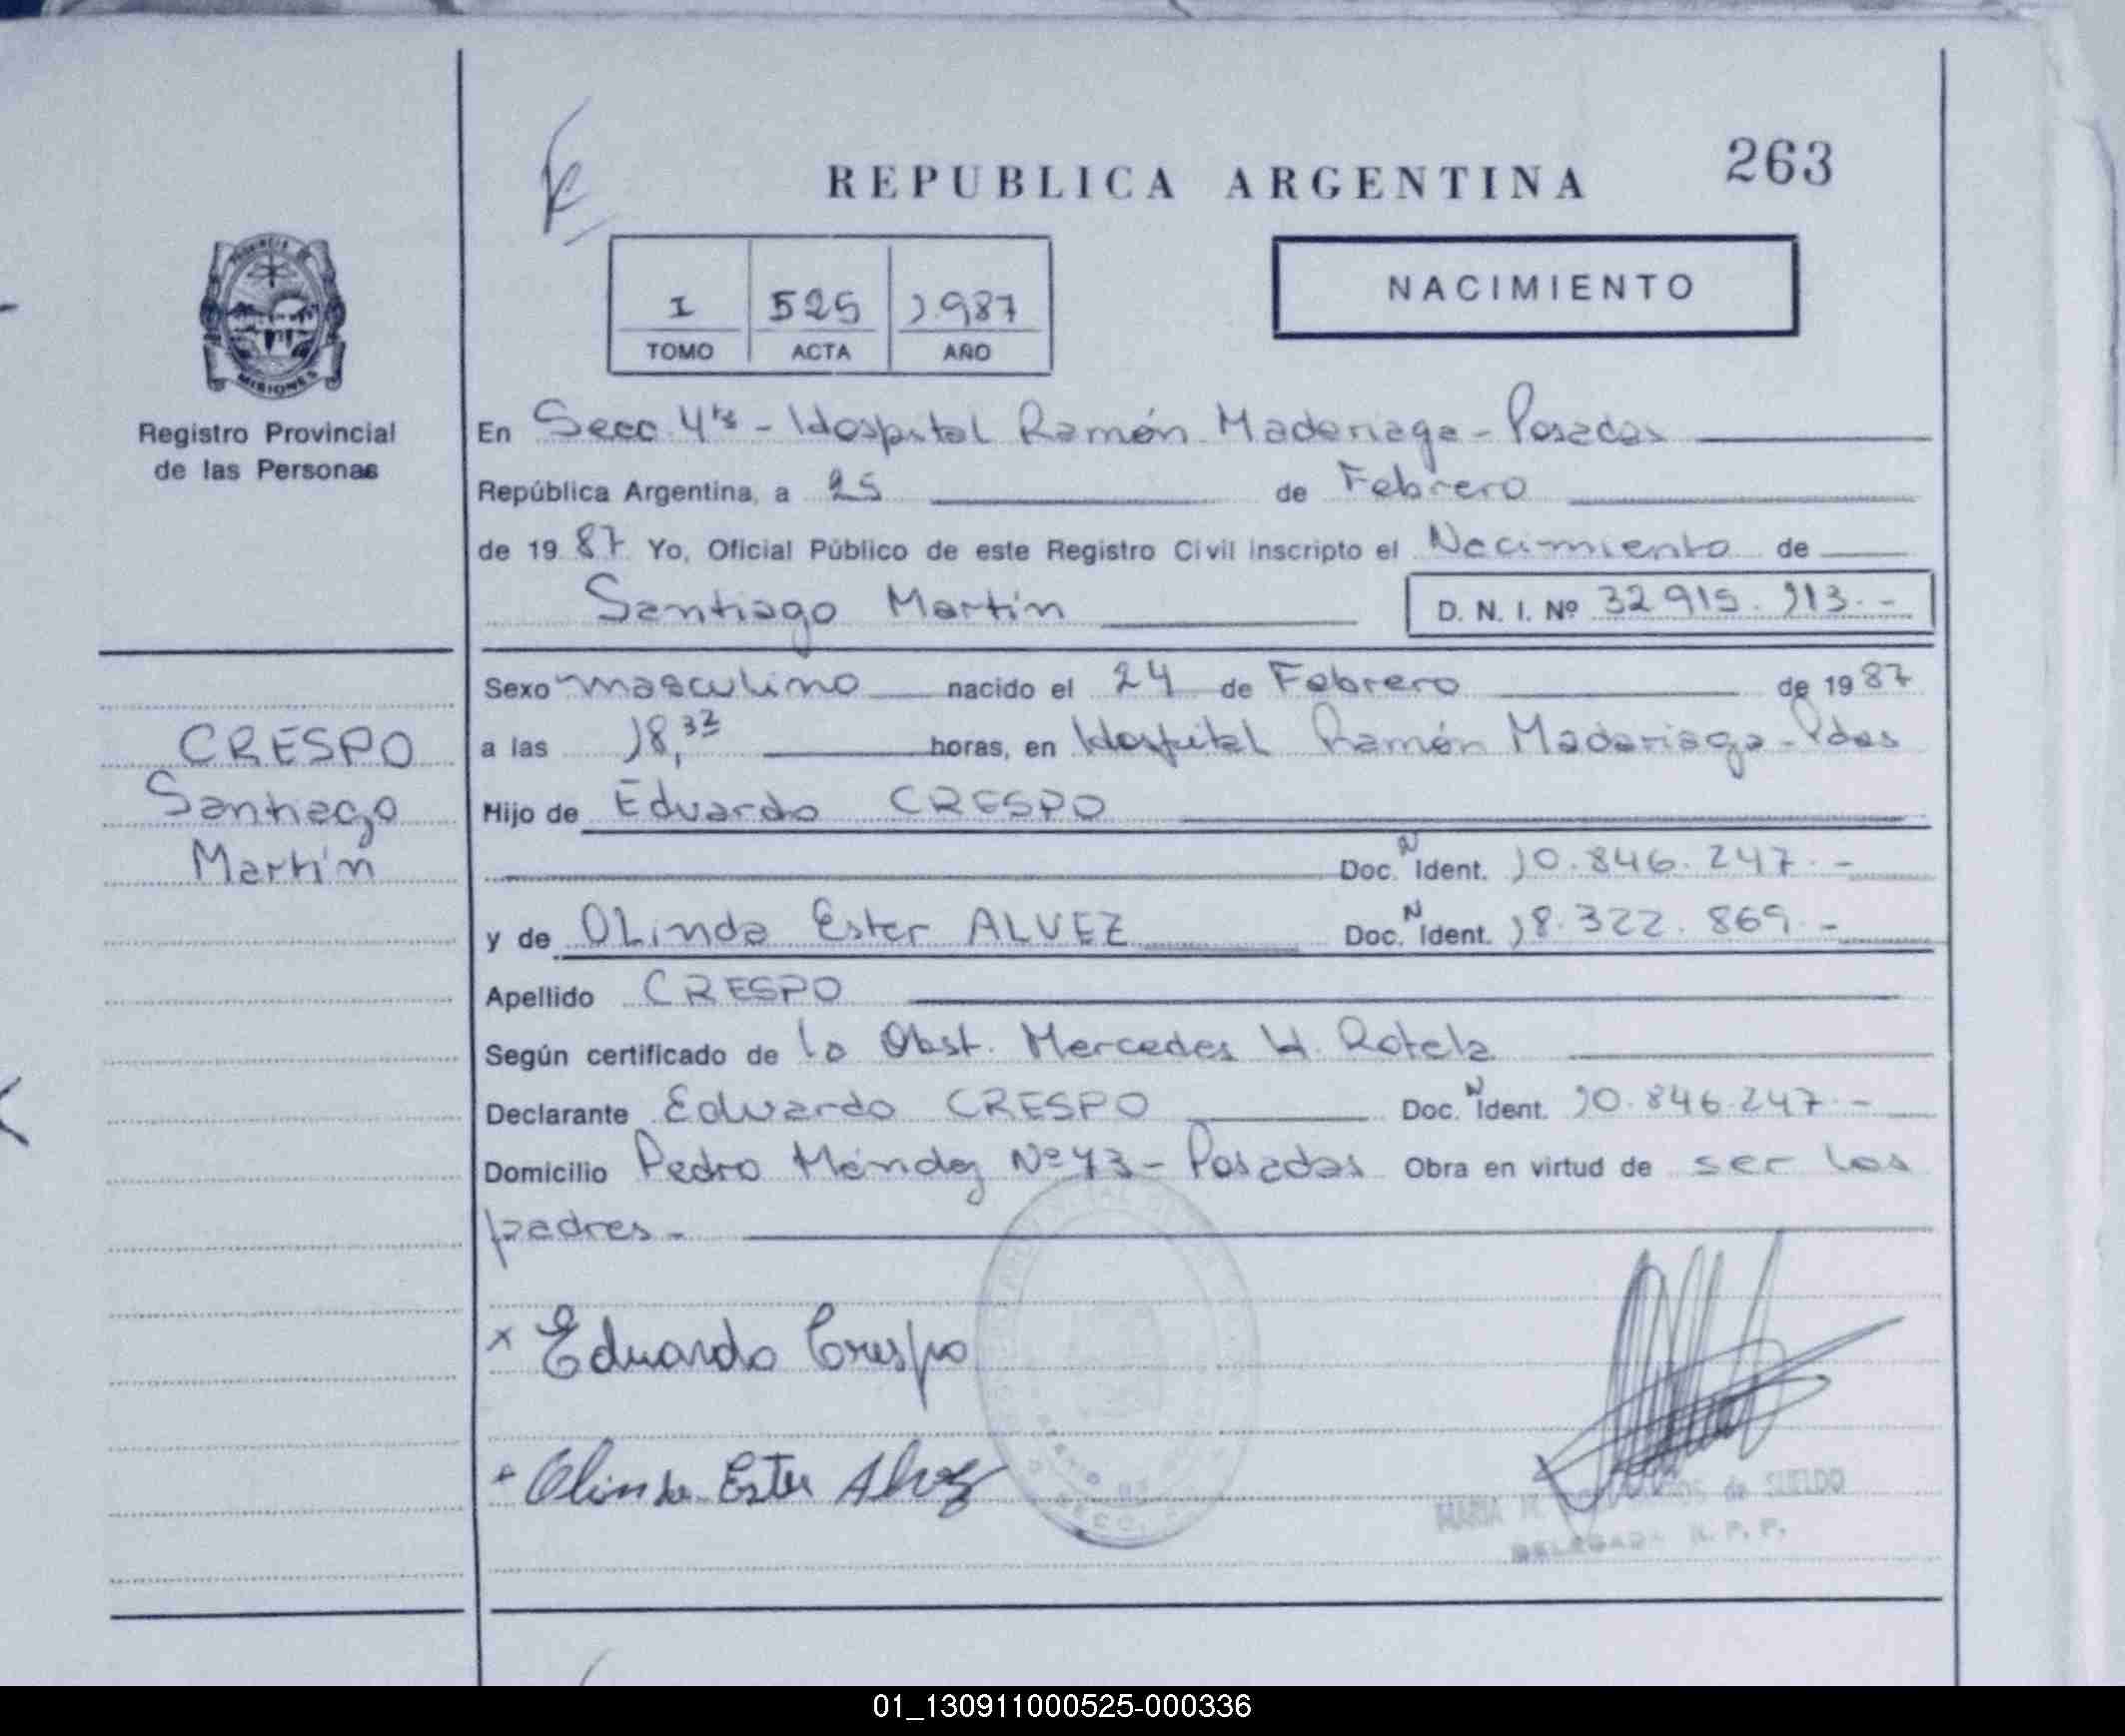 263
REPUBLICA ARGENTINA
NACIMIENTO
I 525 1.987
TOMO ACTA AÑO
MISIONES
Registro Provincial
de las Personas
CRESPO
Santiago
Martín
En Secc. 4ta - Hospital Ramón Madariaga - Posadas
República Argentina, a 25 de Febrero
de 19 87 Yo, Oficial Público de este Registro Civil inscripto el Nacimiento de
Santiago Martín D. N. I. Nº 32 915. 913.-
Sexo masculino nacido el 24 de Febrero de 19 87
a las 18,32 horas, en Hospital Ramón Madariaga - Pdas
Hijo de Eduardo CRESPO
Doc. N Ident. 10.846.247.-
y de OLinda Ester ALVEZ Doc. N Ident. 18.322.869.-
Apellido CRESPO
Según certificado de la Obst. Mercedes H. Rotela
Declarante Eduardo CRESPO Doc. N Ident. 10.846.247.-
Domicilio Pedro Méndez Nº 43 - Posadas Obra en virtud de ser los
padres.-
x Eduardo Crespo
Olinda Ester Alvez
MARIA de SUELDO
DELEGADA R. P. P.
01_130911000525-000336